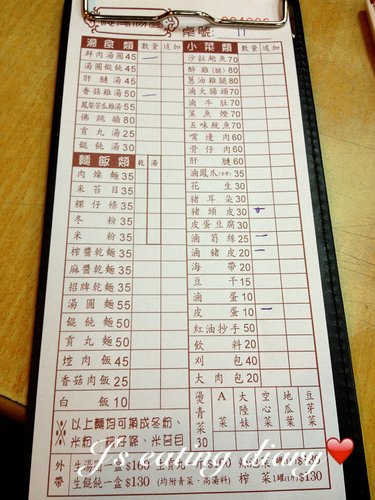 桌號: 11
湯食類 數量 追加
鮮肉湯圓45 一
湯圓餛飩45
肝膶湯45
香菇雞湯50 一
鳳梨苦瓜雞湯55
佛跳牆80
貢丸湯25
餛飩湯30
麵飯類 乾 湯
肉燥麵35
米苔目35
粿仔條35
冬粉35
米粉35
榨醬乾麵35
麻醬乾麵35
招牌乾麵35
湯圓麵55
餛飩麵50
貢丸麵50
焢肉飯45
香菇肉飯25
白飯10
※以上麵均可換成冬粉、
米粉、粿仔條、米苔目
小菜類 數量 追加
沙拉鮑魚70
醉雞(腿)80
蔥油雞腿80
滷大腸頭70
滷牛肚70
鯊魚煙70
五味魷魚70
嘴邊肉60
骨仔肉60
肝膶60
滷鳳爪30
花生30
豬耳朵30
豬頭皮30
皮蛋豆腐30
滷筍絲25 一
滷豬皮20 一
海帶20
豆干15
滷蛋10
皮蛋10 一
紅油抄手50
飲料20
刈包40
大肉包20
燙青菜30
A菜
大陸妹
空心菜
地瓜葉
豆芽菜
外帶
生湯圓一盒$160
生餛飩一盒$130 (均附青菜、高湯料) 榨菜1罐 $130
J's eating diary